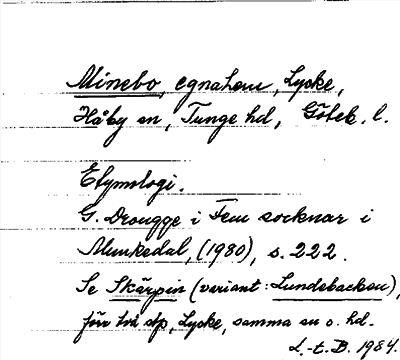 Minebo, egnahem, Lycke,
Håby sn, Tunge hd, Göteb. l.
Etymologi.
G. Drougge i Fem socknar i
Munkedal, (1980), s. 222.
Se Skärpin (variant: Lundebacken),
för två stp, Lycke, samma sn o. hd.
L.-t. B. 1984.